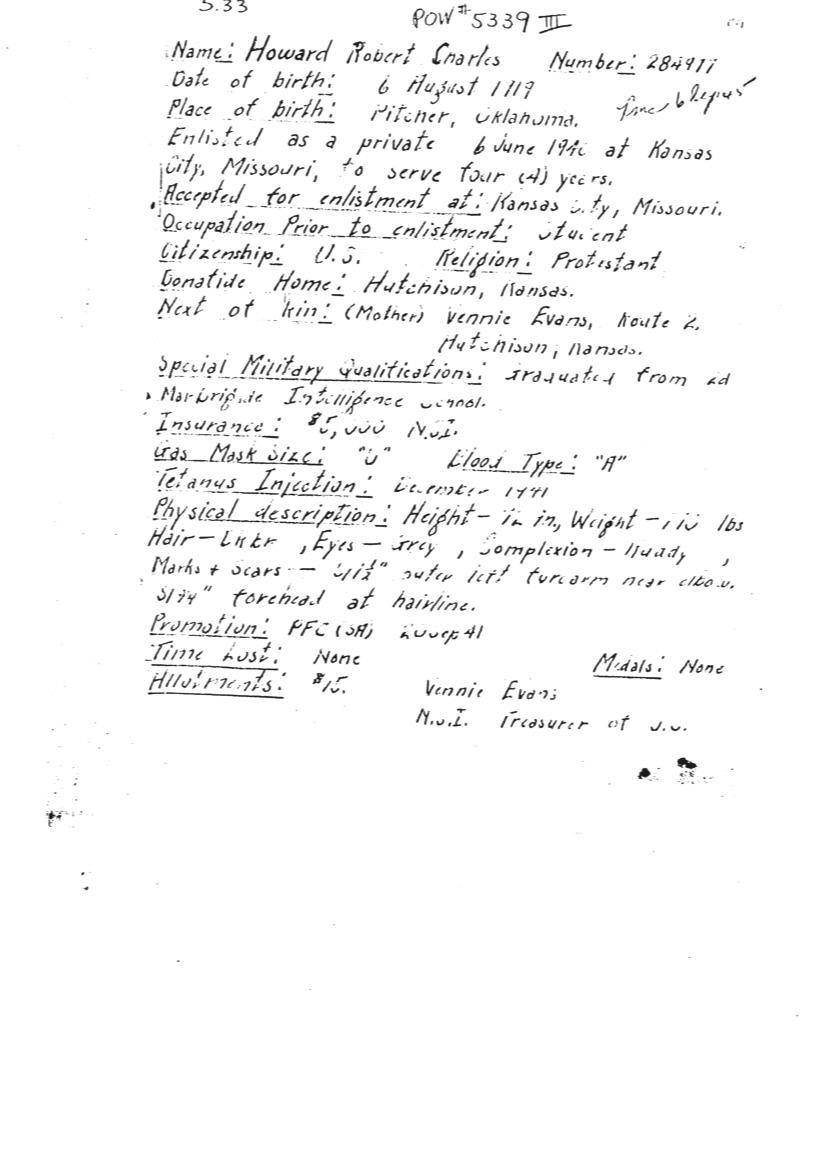 5.33
POW # 5339 III
Name: Howard Robert Charles Number: 284977
Date of birth: 6 August 1919
Place of birth: Pitcher, Oklahoma.
Enlisted as a private 6 June 1940 at Kansas
City, Missouri, to serve four (4) years.
Accepted for enlistment at: Kansas City, Missouri.
Occupation Prior to enlistment: Student
Citizenship: U.S. Religion: Protestant
Bonafide Home: Hutchison, Kansas.
Next of kin: (Mother) Vennie Evans, Route 2.
Hutchison, Kansas.
Special Military Qualifications: Graduated from 2d
Marbrigade Intelligence School.
Insurance: $5,000 N.S.I.
Gas Mask Size: "U" Blood Type: "A"
Tetanus Injection: December 1941
Physical description: Height - 72 in, Weight - lbs
Hair - , Eyes - Grey , Complexion - Ruddy ,
Marks & Scars - outer left forearm near elbow.
forehead at hairline.
Promotion: PFC 41
Time Lost: None Medals: None
Allotments: $15. Vennie Evans
N.S.I. Treasurer of U.S.